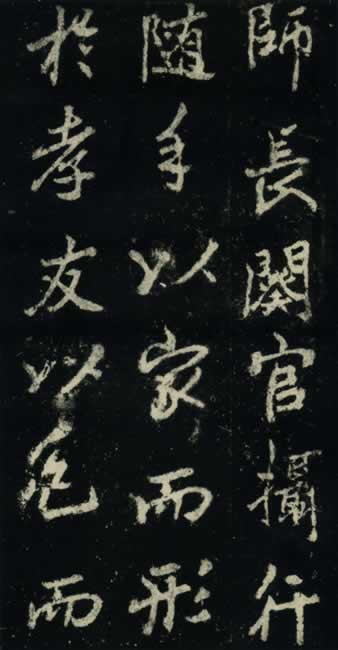 師長闕官攝行
随手以家而形
於孝友以危而